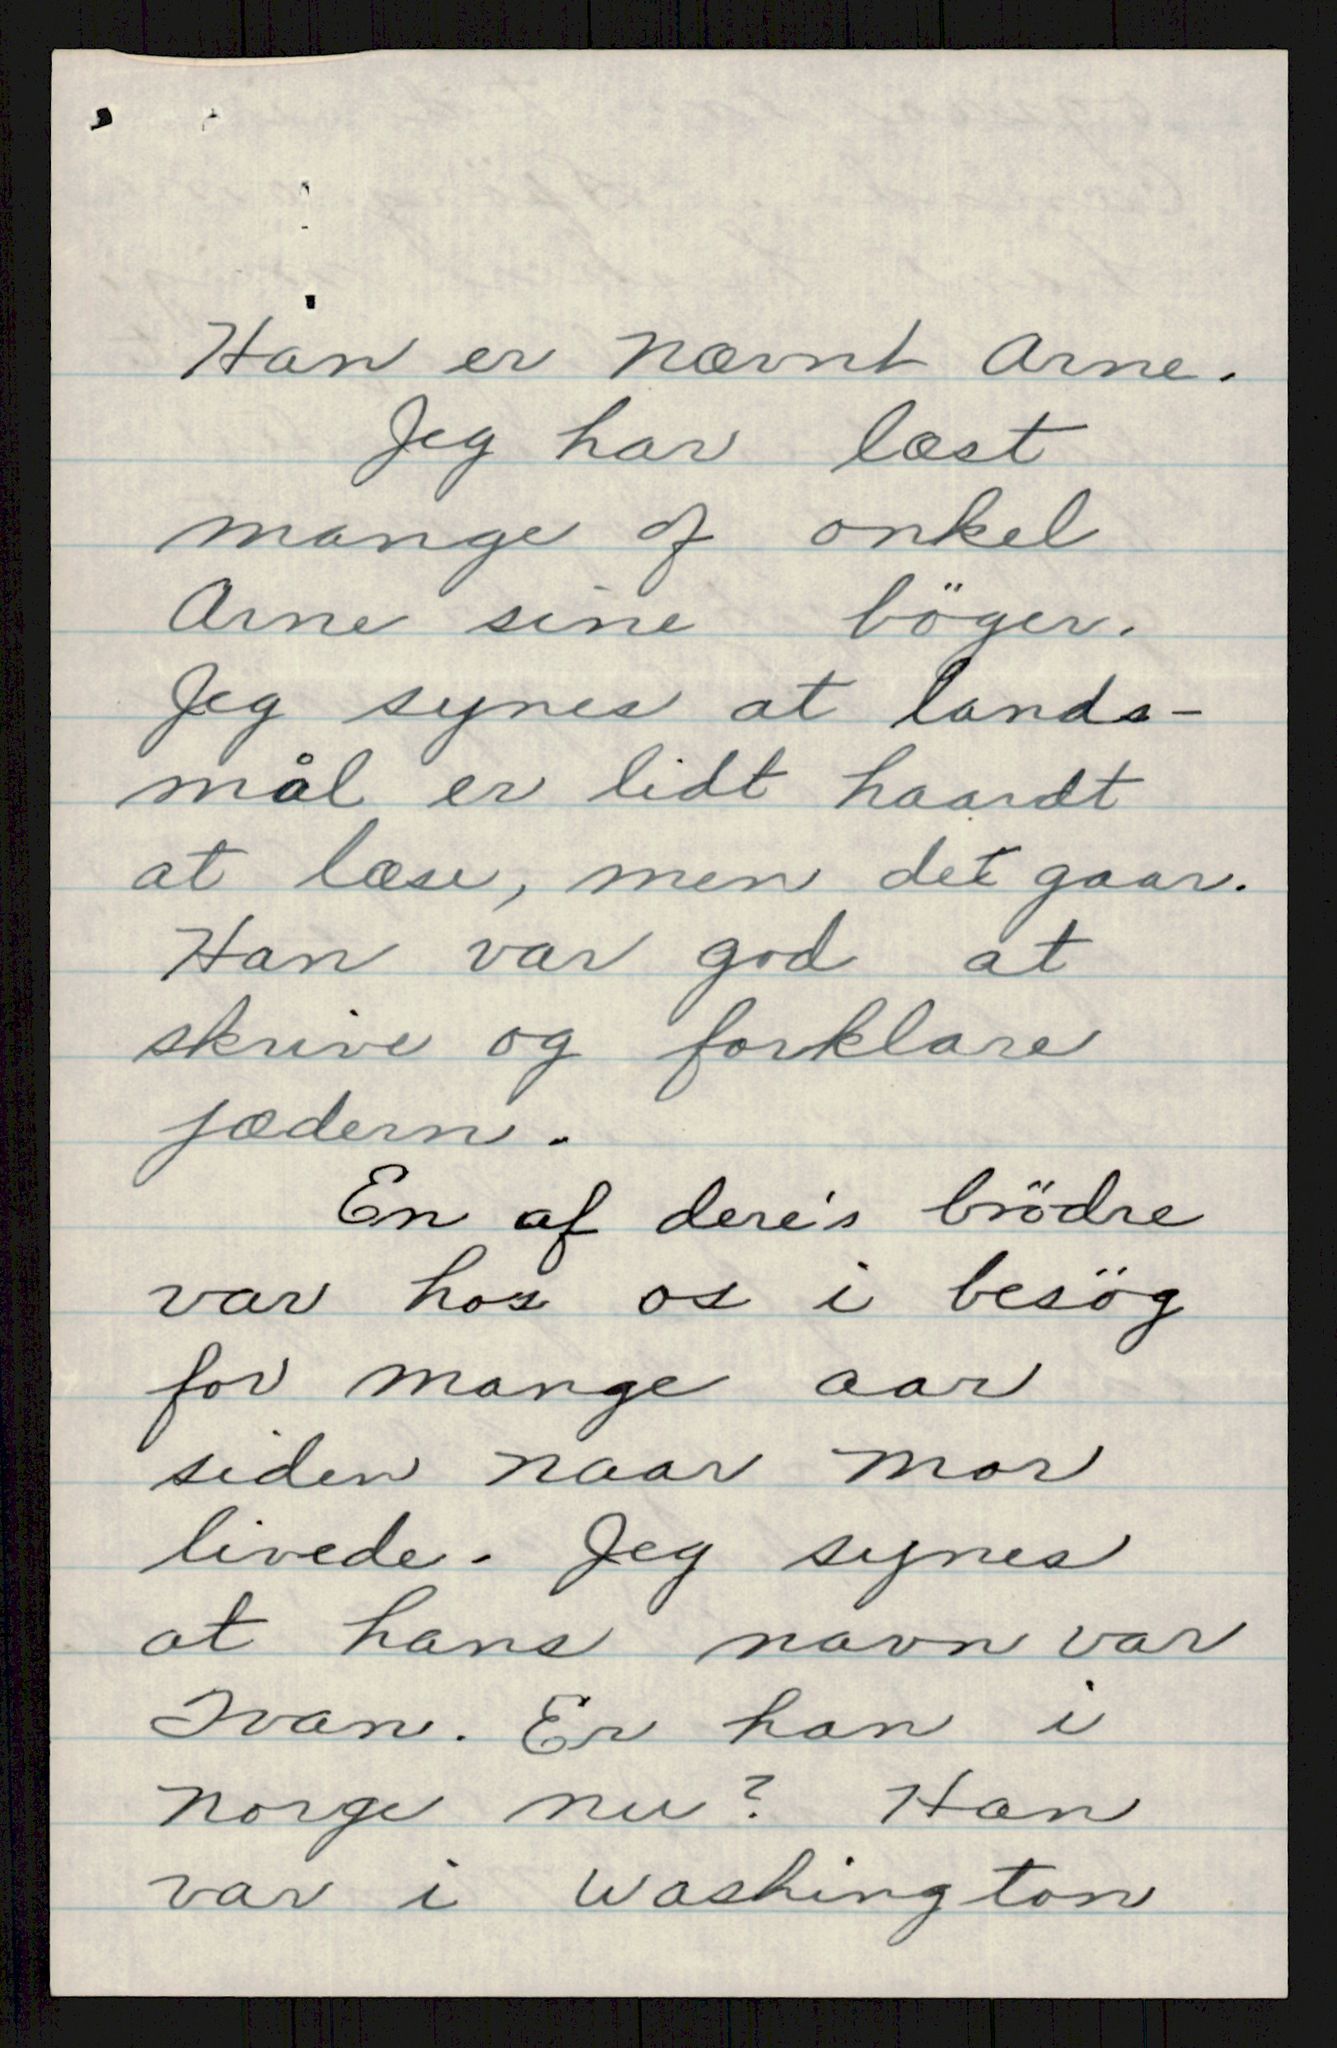 Han er nævnt Arne.
Jeg har læst
mange af onkel
Arne sine böger.
Jeg synes at lands-
mål er lidt haardt
at læse, men det gaar.
Han var god at
skrive og forklare
jædern.
En af dere's brödre
var hos os i besög
for mange aar
siden naar mor
livede. Jeg synes
at hans navn var
Ivan. Er han i
Norge nu? Han
var i Washington